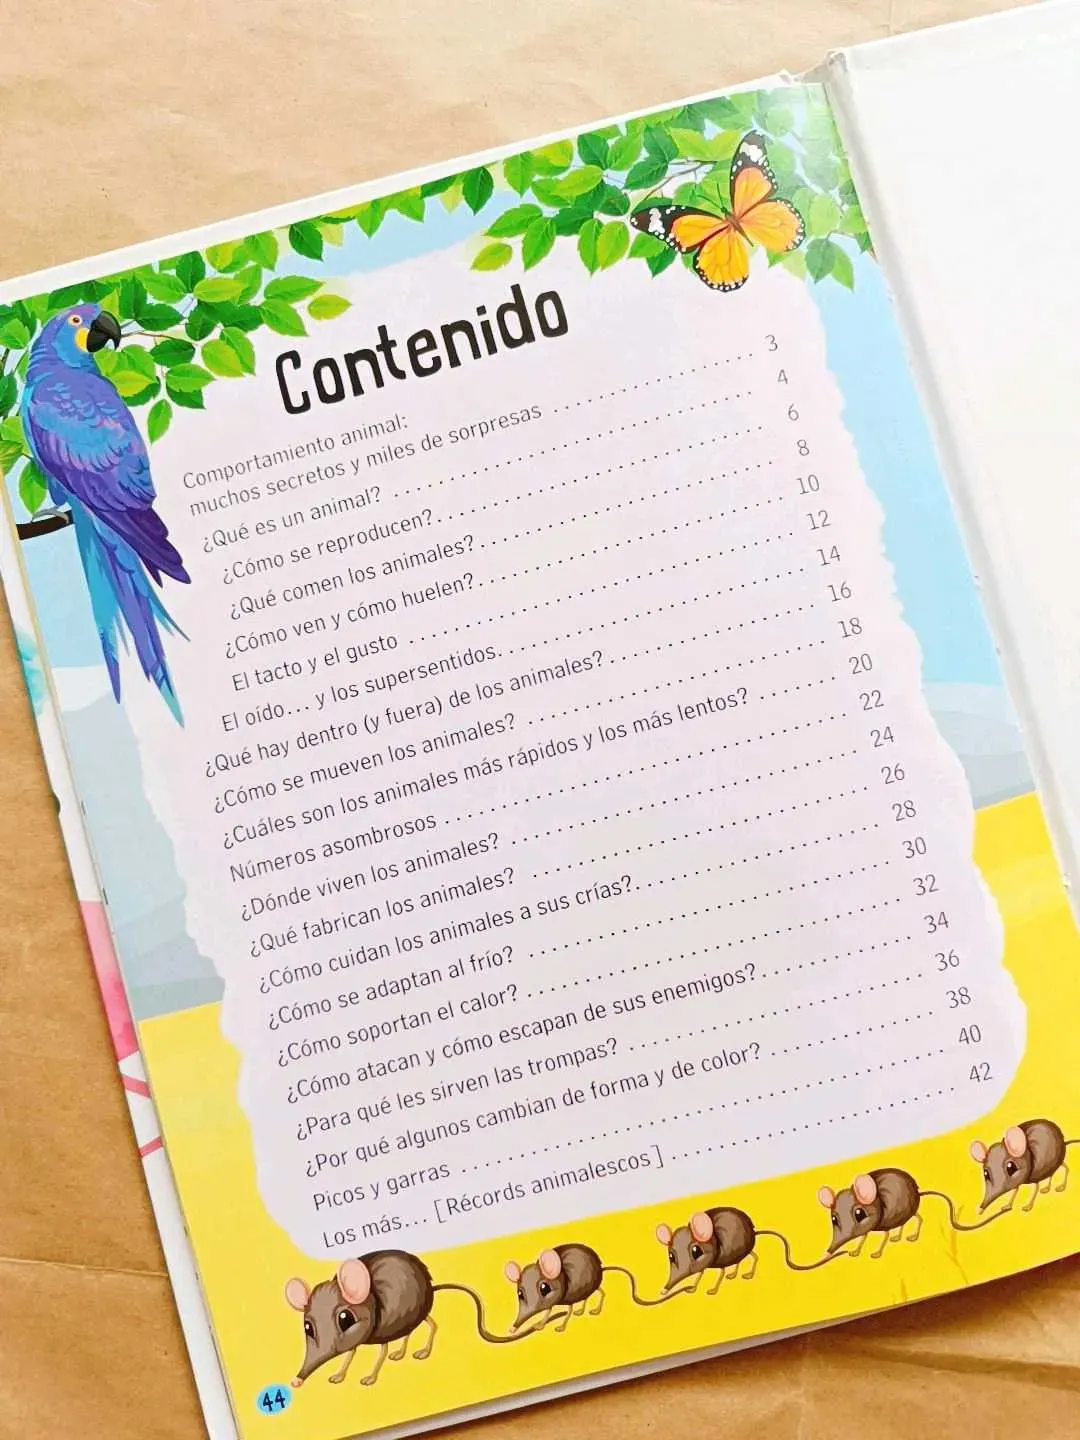 Contenido
Comportamiento animal:
muchos secretos y miles de sorpresas ..................... 3
¿Qué es un animal? ..................... 4
¿Cómo se reproducen? ..................... 6
¿Qué comen los animales? ..................... 8
¿Cómo ven y cómo huelen? ..................... 10
El tacto y el gusto ..................... 12
El oído... y los supersentidos ..................... 14
¿Qué hay dentro (y fuera) de los animales? ..................... 16
¿Cómo se mueven los animales? ..................... 18
¿Cuáles son los animales más rápidos y los más lentos? ....... 20
Números asombrosos ..................... 22
¿Dónde viven los animales? ..................... 24
¿Qué fabrican los animales? ..................... 26
¿Cómo cuidan los animales a sus crías? ..................... 28
¿Cómo se adaptan al frío? ..................... 30
¿Cómo soportan el calor? ..................... 32
¿Cómo atacan y cómo escapan de sus enemigos? ............ 34
¿Para qué les sirven las trompas? ..................... 36
¿Por qué algunos cambian de forma y de color? ............ 38
Picos y garras ..................... 40
Los más... [Récords animalescos] ..................... 42
44